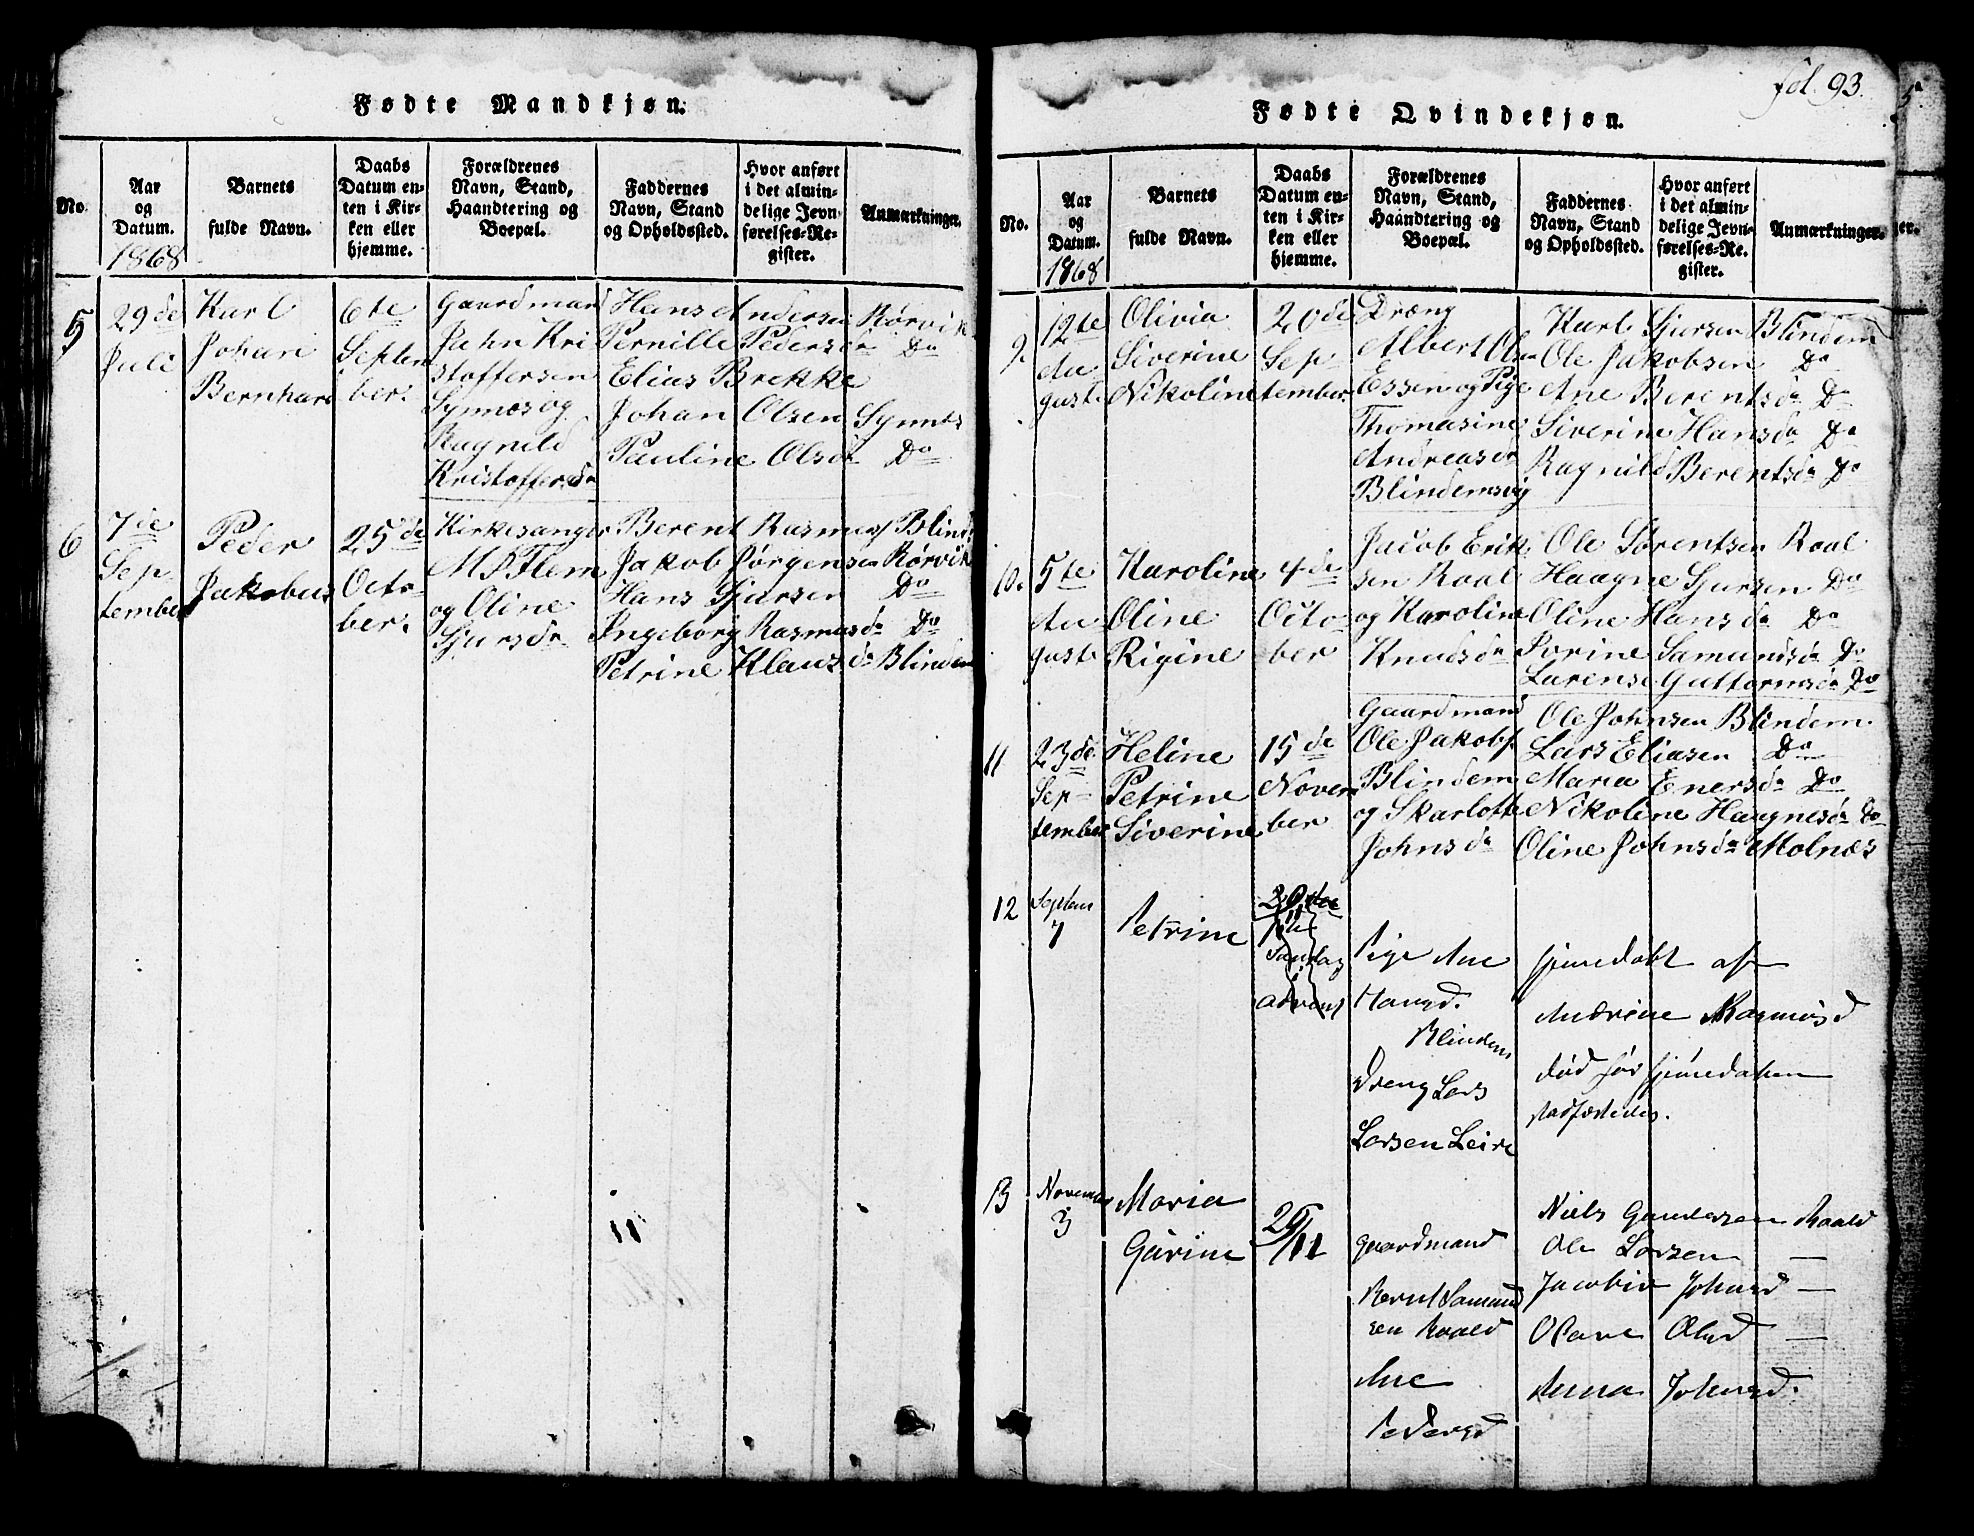 Fødte Mandkjøn.
No.
Aar og Datum.
1868
Barnets fulde Navn.
Daabs Datum enten i Kirken eller hjemme.
Forældrenes Navn, Stand, Haandtering og Boepæl.
Faddernes Navn, Stand og Opholdssted.
Hvor anført i det almindelige Jevnførelses-Register.
Anmærkninger.
5
29de
Juli
Karl
Johan
Bernhard
6te
Septem
ber.
Gaardmand
Jahn Kri
stoffersen
Synnes og
Ragnild
Kristoffersdr
Hans Andersen Rørvik
Pernille Pedersdr Do
Elias Brekke
Johan Olsen Synnes
Pauline Olsdr Do
6
7de
Sep
tember
Peder
Jakobus
25de
Octo
ber.
Kirkesanger
M P Flem
og Oline
Sjursdr
Berent Rasmus Blind.
Jakob Jørgensen Rørvik
Hans Sjursen Do
Ingeborg Rasmusdr Do
Petrine Klausdr Blindem
11
fol. 93.
Fødte Qvindekjøn.
No.
Aar og Datum.
1868
Barnets fulde Navn.
Daabs Datum enten i Kirken eller hjemme.
Forældrenes Navn, Stand, Haandtering og Boepæl.
Faddernes Navn, Stand og Opholdssted.
Hvor anført i det almindelige Jevnførelses-Register.
Anmærkninger.
9.
12te
Au
gust.
Olivia
Siverine
Nikoline
20de
Sep
tember
Dræng
Albert Olsen
Essen og Pige
Thomasine
Andreasdr
Blindemsvig
Karl Sjursen Blindem
Ole Jakobsen Do
Ane Berentsdr Do
Siverine Hansdr Do
Ragnild Berentsdr Do
10.
5te
Au
gust.
Karoline
Oline
Rigine
4de
Octo
ber
Jacob Erik
sen Roal
og Karoline
Knudsdr
Ole Sørentsen Roal
Haagne Sjursen Do
Oline Hansdr Do
Sørine Samundsdr Do
Larense Guttormsdr Do
11
23de
Sep
tember
Heline
Petrine
Siverine
15de
Novem
ber
Gaardmand
Ole Jakobs.
Blindem
og Skarlotte
Johnsdr
Ole Johnsen Blindem.
Lars Eliasen Do
Maria Enersdr Do
Nikoline Haagnesdr Do
Oline Johnsdr Molnæs
12
Septem
7
Petrine
Søndag
advent
Pige Ane
Hansd.
Blindem
Dreng Lars
Larsen Leire
hjemedøbt af
Andrine Rasmusd
død før hjemedaaben
stadfæstedes.
13
November
3
Maria
Garine
29/11
Gaardmand
Bernt Samund
sen Roald
Ane
Pedersd
Niels Gundersen Roald
Ole Larsen —
Jacobie Johnsd —
Olave Olsd —
Anna Johnsd.